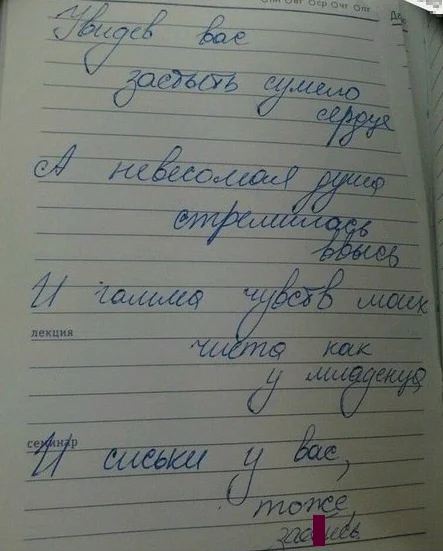 Увидев вас
застыть сумело
сердце
А невесомая душа
стремилась
ввысь
И гамма чувств моих
лекция
чиста как
у младенца
семинар
И сиськи у вас,
тоже,